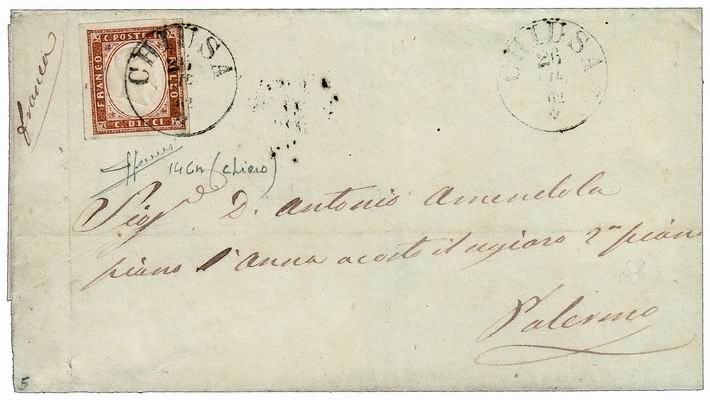 Franca
C. POSTE
FRANCO
BOLLO
C. DIECI
CHIUSA
CHIUSA
26
62
14Ch (chiaro)
Sigr. D. Antonio Amendola
piano S. Anna acosto il 2º piano
Palermo
5